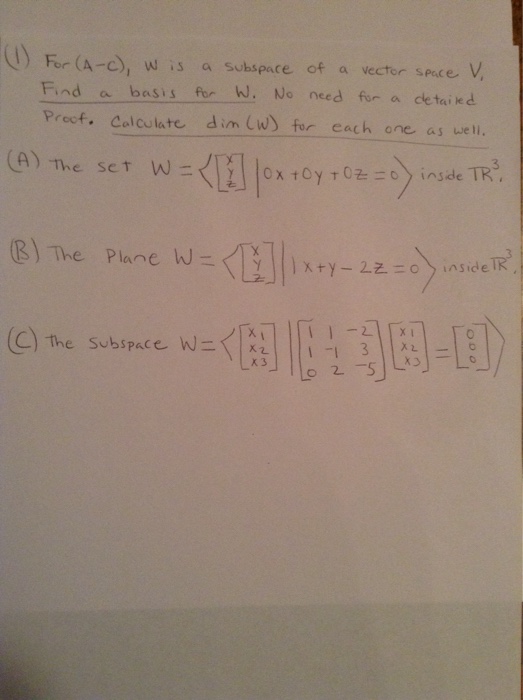 (1) For (A-C), W is a subspace of a vector space V,
Find a basis for W. No need for a detailed
Proof. Calculate dim(W) for each one as well.
(A) The set W = ⟨[x y z] | 0x+0y+0z=0⟩ inside ℝ³.
(B) The Plane W = ⟨[x y z] | 1x+y-2z=0⟩ inside ℝ³.
(C) The subspace W = ⟨[x1 x2 x3] | [1 1 -2; 1 -1 3; 0 2 -5] [x1 x2 x3] = [0 0 0]⟩